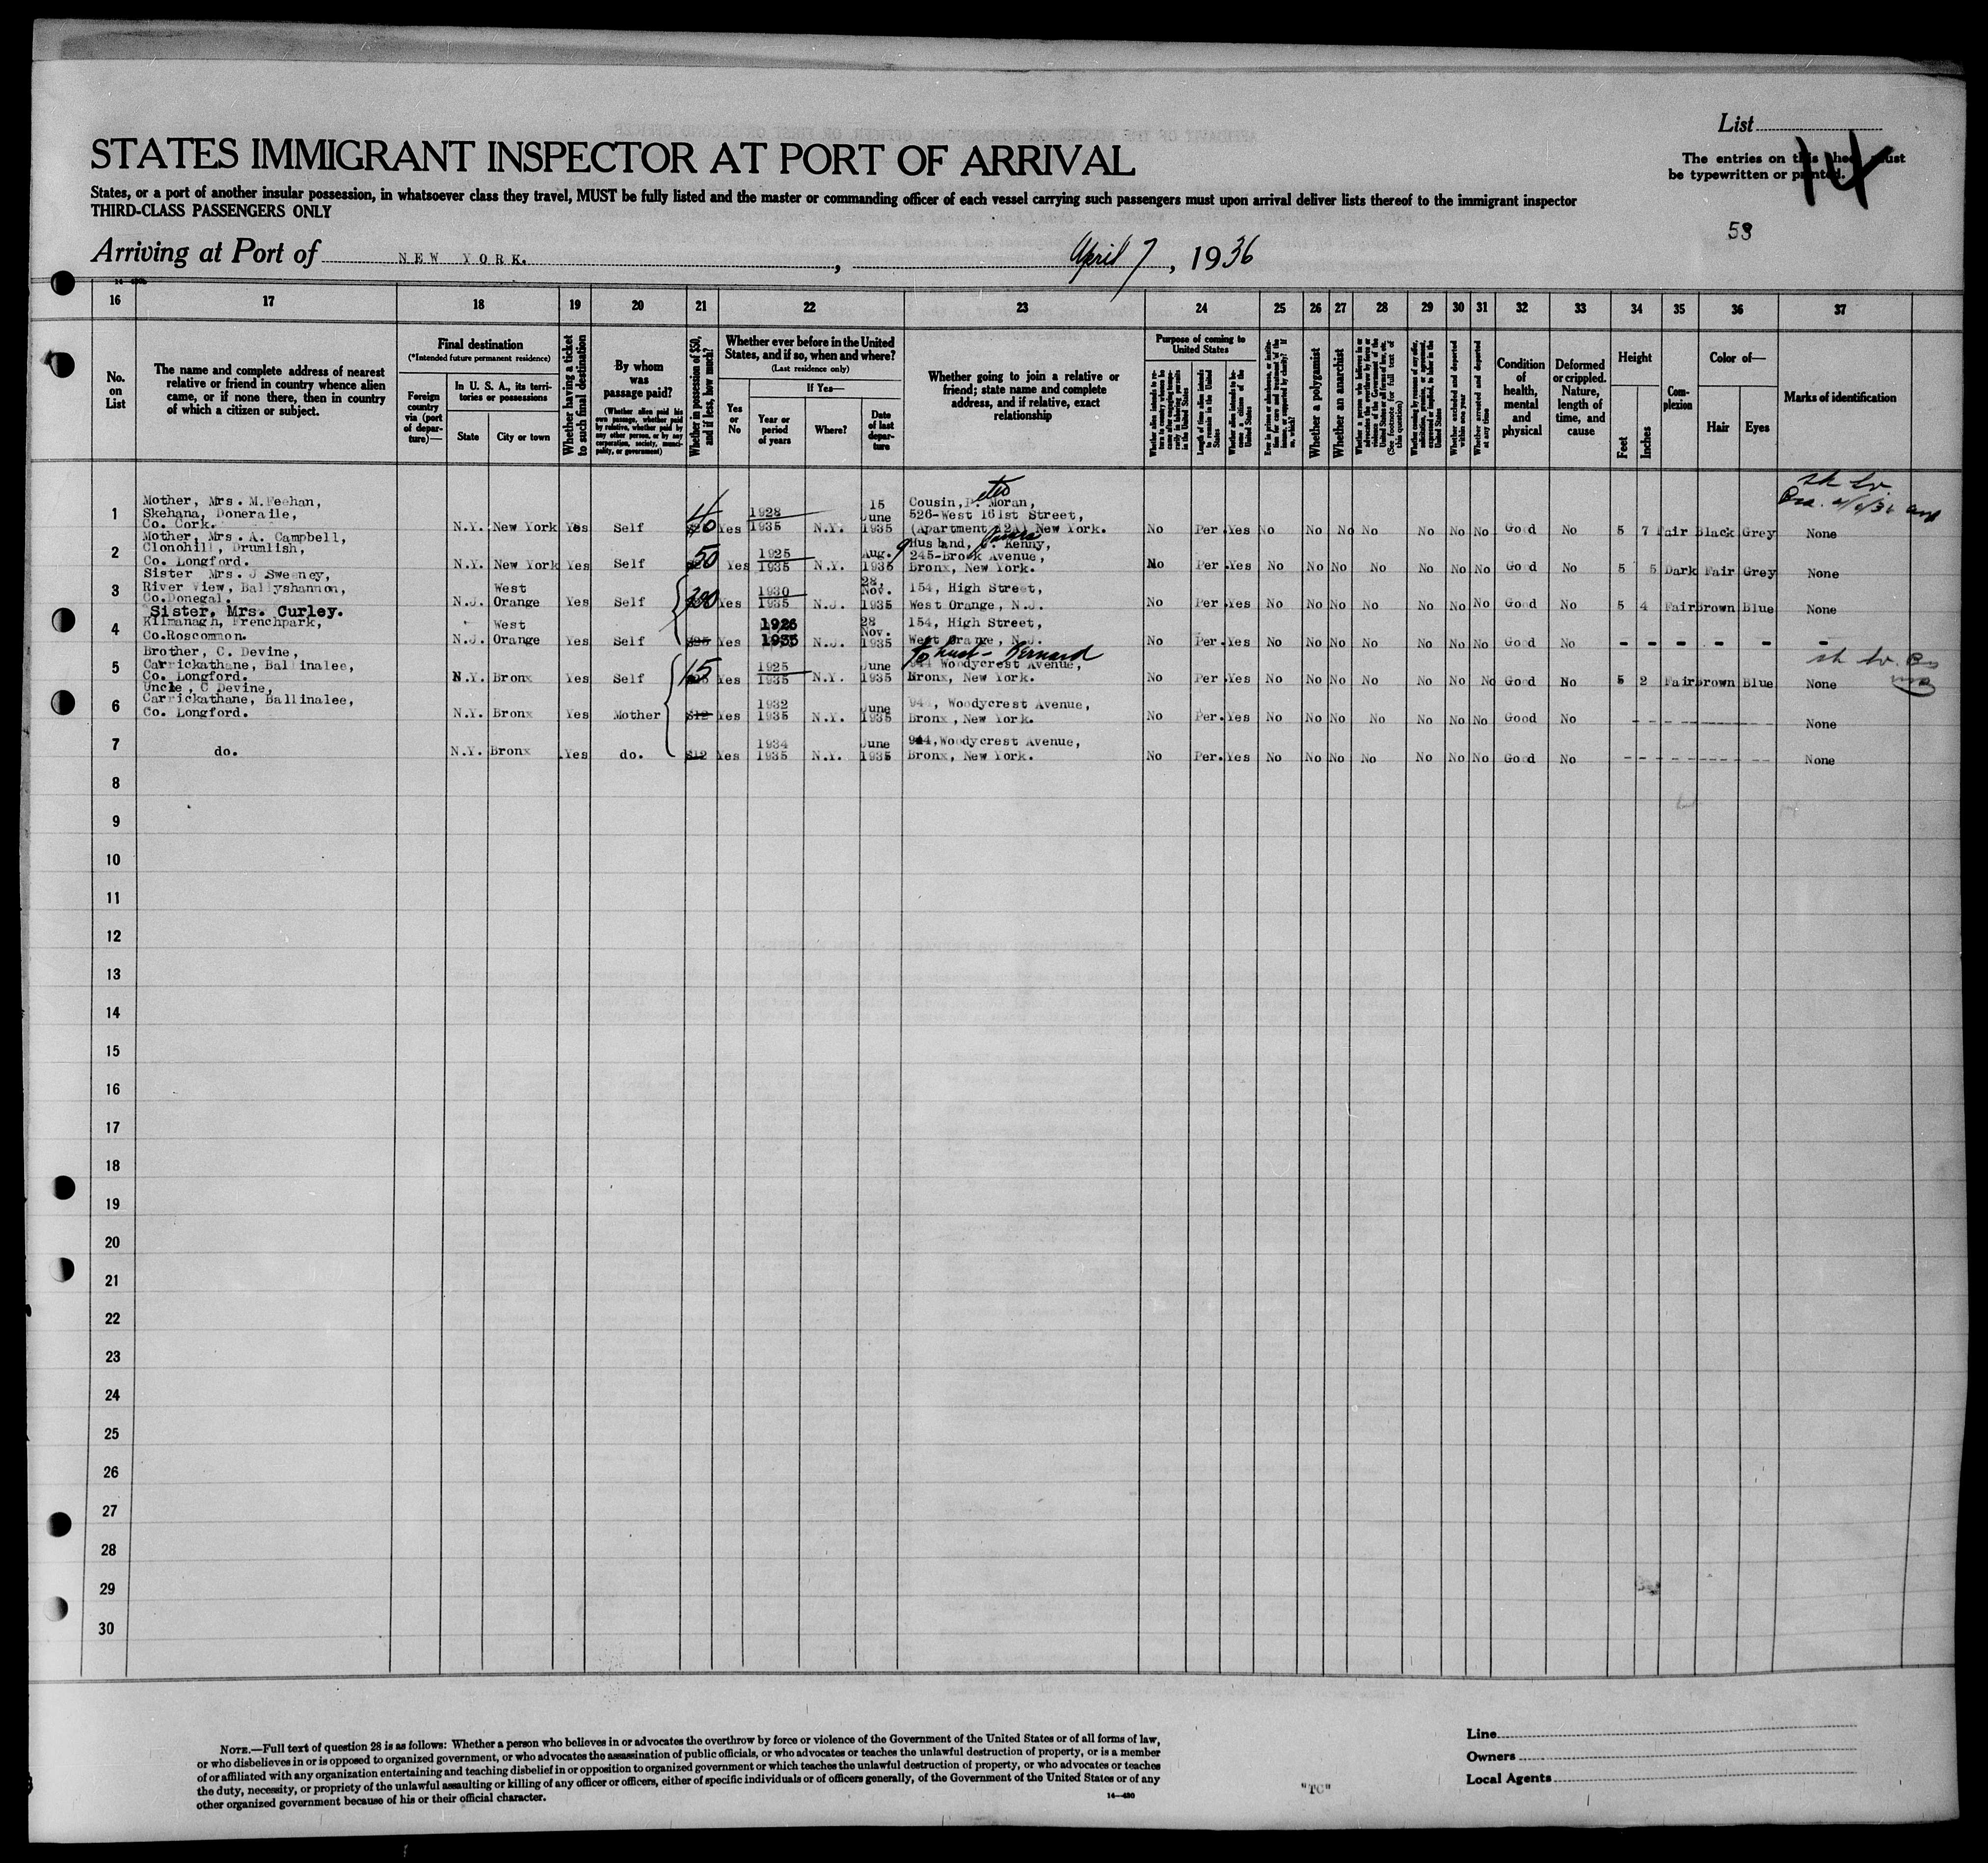 List
14
The entries on this sheet must
be typewritten or printed.
STATES IMMIGRANT INSPECTOR AT PORT OF ARRIVAL
States, or a port of another insular possession, in whatsoever class they travel, MUST be fully listed and the master or commanding officer of each vessel carrying such passengers must upon arrival deliver lists thereof to the immigrant inspector
THIRD-CLASS PASSENGERS ONLY
53
Arriving at Port of NEW YORK. , April 7 , 1936
16 17 18 19 20 21 22 23 24 25 26 27 28 29 30 31 32 33 34 35 36 37
No. on List
The name and complete address of nearest relative or friend in country whence alien came, or if none there, then in country of which a citizen or subject.
Final destination
(*Intended future permanent residence)
Foreign country via (port of departure)—
In U. S. A., its territories or possessions
State
City or town
Whether having a ticket to such final destination
By whom was passage paid?
(Whether alien paid his own passage, whether paid by relative, whether paid by any other person, or by any corporation, society, municipality, or government)
Whether in possession of $50, and if less, how much?
Whether ever before in the United States, and if so, when and where?
(Last residence only)
Yes or No
If Yes—
Year or period of years
Where?
Date of last departure
Whether going to join a relative or friend; state name and complete address, and if relative, exact relationship
Purpose of coming to United States
Length of time alien intends to remain in the United States
Whether alien intends to become a citizen of the United States
Whether a polygamist
Whether an anarchist
(See footnote for full text of this question)
Whether excluded and deported within one year
Whether arrested and deported at any time
Condition of health, mental and physical
Deformed or crippled. Nature, length of time, and cause
Height
Feet
Inches
Complexion
Color of—
Hair
Eyes
Marks of identification
1 Mother, Mrs. M. Feehan,
Skehana, Doneraile,
Co. Cork. N.Y. New York Yes Self 40 Yes 1928 1935 N.Y. 15 June 1935 Cousin, P. Moran,
526-West 161st Street,
(Apartment 22A) New York. No Per. Yes No No No No No No No Good No 5 7 Fair Black Grey None
2 Mother, Mrs. A. Campbell,
Clonohill, Drumlish,
Co. Longford. N.Y. New York Yes Self 50 Yes 1925 1935 N.Y. Aug. 9 1935 Husband, Kenny,
245-Brook Avenue,
Bronx, New York. No Per. Yes No No No No No No No Good No 5 5 Dark Fair Grey None
3 Sister Mrs. J Sweeney,
River View, Ballyshannon,
Co. Donegal. N.J. West Orange Yes Self 300 Yes 1930 1935 N.J. 28, Nov. 1935 154, High Street,
West Orange, N.J. No Per. Yes No No No No No No No Good No 5 4 Fair Brown Blue None
4 Sister, Mrs. Curley.
Kilmanagh, Frenchpark,
Co. Roscommon. N.J. West Orange Yes Self $25 Yes 1926 1935 N.J. 28 Nov. 1935 154, High Street,
West Orange, N.J. No Per. Yes No No No No No No No Good No - - - - - -
to husb - Bernard
5 Brother, C. Devine,
Carrickathane, Ballinalee,
Co. Longford. N.Y. Bronx Yes Self 15 Yes 1925 1935 N.Y. June 1935 944 Woodycrest Avenue,
Bronx, New York. No Per. Yes No No No No No No No Good No 5 2 Fair Brown Blue None
6 Uncle, C Devine,
Carrickathane, Ballinalee,
Co. Longford. N.Y. Bronx Yes Mother $12 Yes 1932 1935 N.Y. June 1935 944, Woodycrest Avenue,
Bronx, New York. No Per. Yes No No No No No No No Good No - - - - - - - - None
7 do. N.Y. Bronx Yes do. $12 Yes 1934 1935 N.Y. June 1935 944, Woodycrest Avenue,
Bronx, New York. No Per. Yes No No No No No No No Good No - - - - - - - - None
8
9
10
11
12
13
14
15
16
17
18
19
20
21
22
23
24
25
26
27
28
29
30
NOTE.—Full text of question 28 is as follows: Whether a person who believes in or advocates the overthrow by force or violence of the Government of the United States or of all forms of law,
or who disbelieves in or is opposed to organized government, or who advocates the assassination of public officials, or who advocates or teaches the unlawful destruction of property, or is a member
of or affiliated with any organization entertaining and teaching disbelief in or opposition to organized government or which teaches the unlawful destruction of property, or who advocates or teaches
the duty, necessity, or propriety of the unlawful assaulting or killing of any officer or officers, either of specific individuals or of officers generally, of the Government of the United States or of any
other organized government because of his or their official character.
14—480
"TC"
Line
Owners
Local Agents